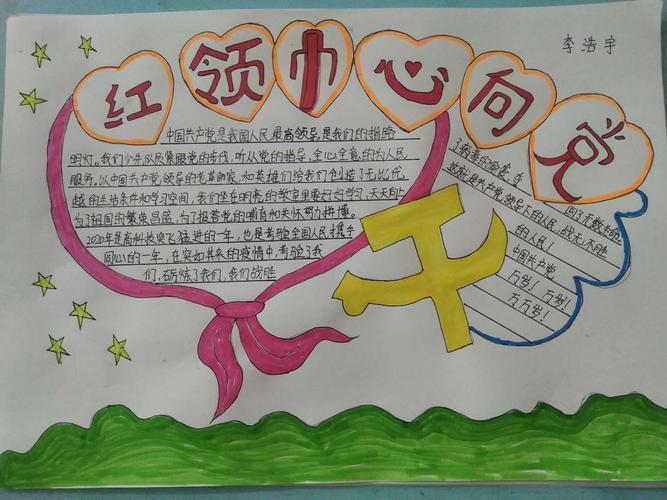 红领巾心向党
李浩宇
中国共产党是我国人民最高领导,是我们的指路
明灯。我们少先队员紧跟党的步伐,听从党的指导,全心全意的为人民
服务。以中国共产党领导的老革命家,和英雄们给我们创造了无比优
越的生活条件和学习空间,我们坐在明亮的教室里要好好学习,天天向上
为了祖国的繁荣昌盛,为了报答党的哺育和关怀努力拼搏。
2020年是高科技突飞猛进的一年,也是考验全国人民携手
同心的一年,在突如其来的疫情中,考验了我
们,砺炼了我们,我们战胜
了病毒的
回了无数
这就是共产党领导下的人民,战无不胜
的人民!
中国共产党
万岁!万岁!
万万岁!